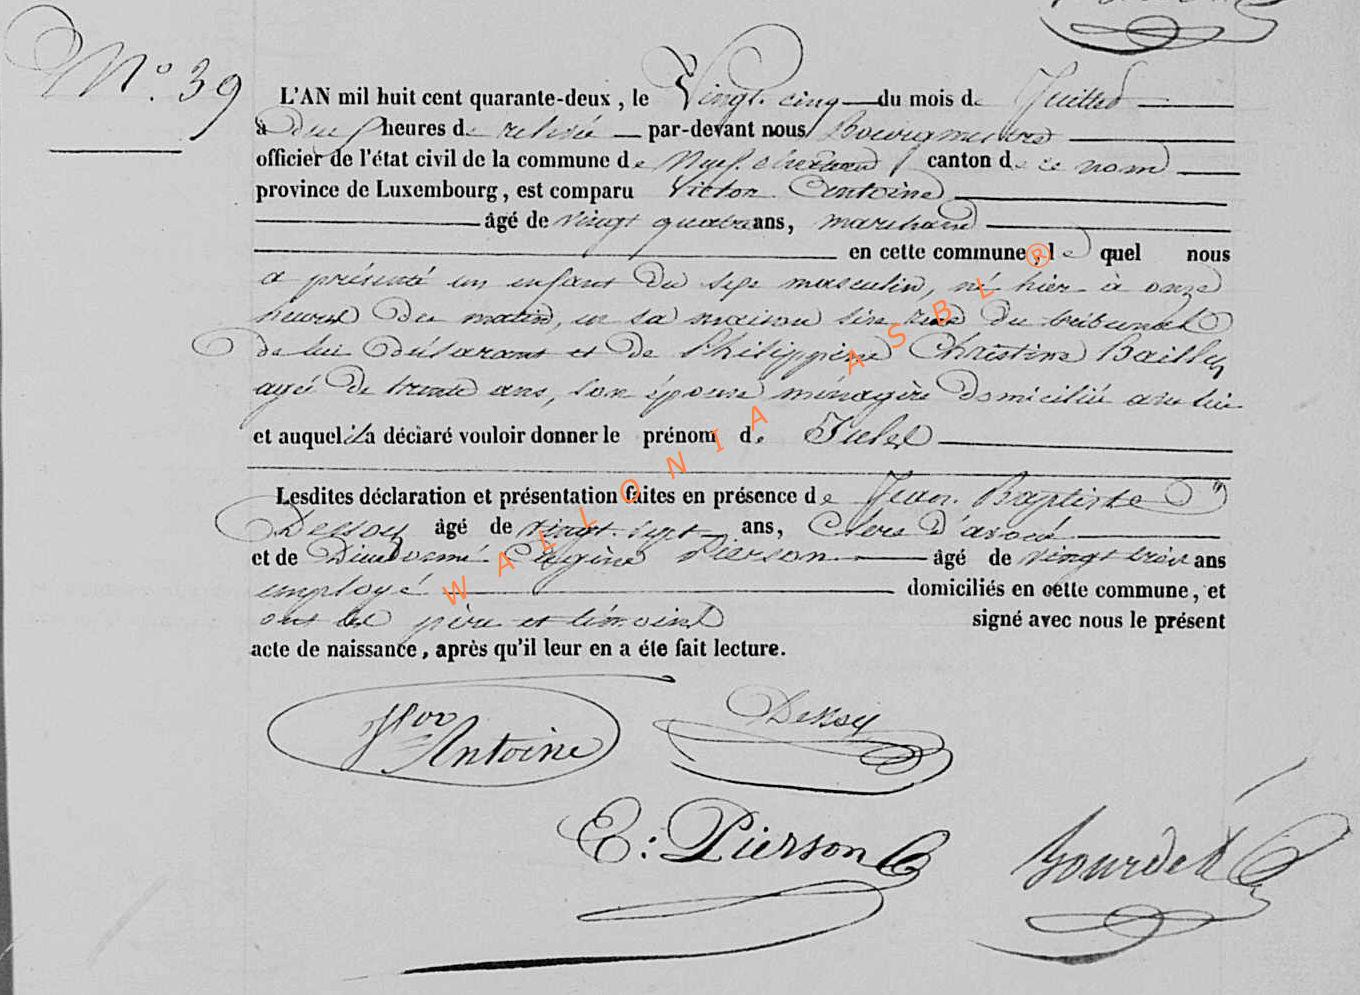 N.° 39
L'AN mil huit cent quarante-deux, le Vingt-cinq du mois de Juillet
à deux heures de relevée par-devant nous Bourgmestre
officier de l'état civil de la commune de Neufchateau canton de ce nom
province de Luxembourg, est comparu Victor Antoine
âgé de vingt quatre ans, marchand
en cette commune, le quel nous
a présenté un enfant du sexe masculin, né hier à onze
heures du matin, en sa maison sise rue du tribunal
de lui déclarant et de Philippine Christine Bailly
agée de trente ans, son épouse ménagère domiciliée avec lui
et auquel il a déclaré vouloir donner le prénom de Jules
Lesdites déclaration et présentation faites en présence de Jean Baptiste
Dessoy âgé de vingt-sept ans, Clerc d'avoué
et de Dieudonné Eugène Pierson âgé de vingt trois ans
employé domiciliés en cette commune, et
ont les père et témoins signé avec nous le présent
acte de naissance, après qu'il leur en a éte fait lecture.
Antoine
Dessoy
E: Pierson
Bourdet
WALLONIA ASBL ®